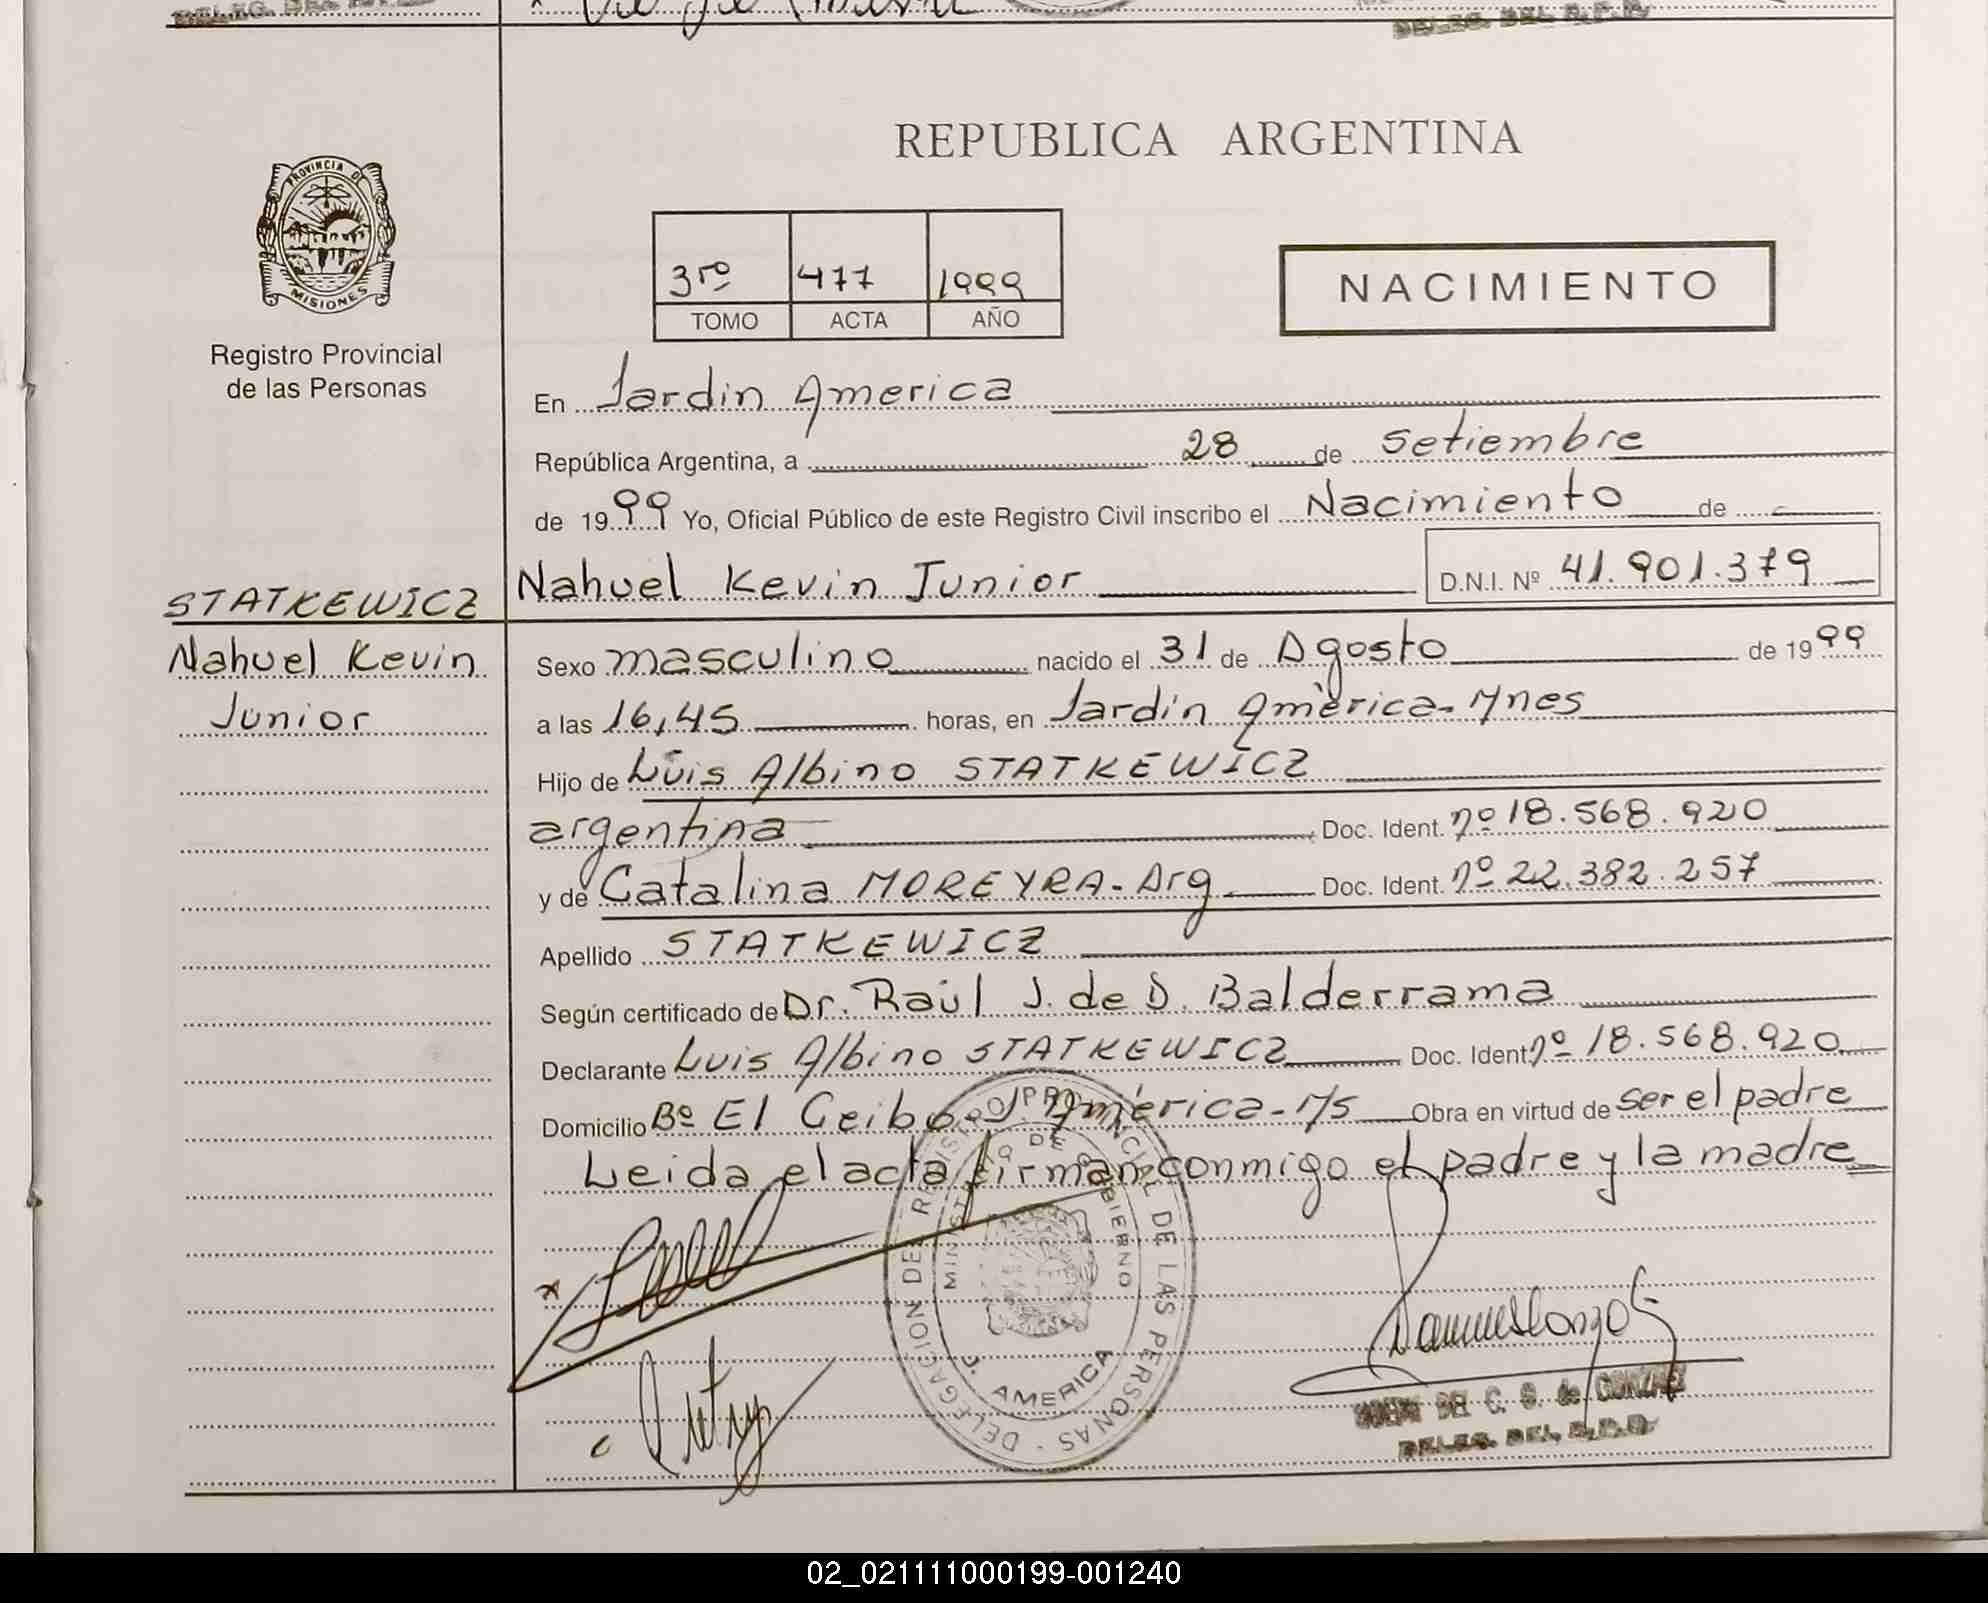 DELEG. DEL R.P.P.
REPUBLICA ARGENTINA
PROVINCIA DE
MISIONES
Registro Provincial
de las Personas
3ro 477 1999
TOMO ACTA AÑO
NACIMIENTO
En Jardin America
República Argentina, a 28 de Setiembre
de 1999 Yo, Oficial Público de este Registro Civil inscribo el Nacimiento de
STATKEWICZ
Nahuel Kevin
Junior
Nahuel Kevin Junior D.N.I. Nº 41.901.379
Sexo masculino nacido el 31 de Agosto de 1999
a las 16,45 horas, en Jardin América-Mnes
Hijo de Luis Albino STATKEWICZ
argentina Doc. Ident. nº 18.568.920
y de Catalina MOREYRA-Arg. Doc. Ident. nº 22.382.257
Apellido STATKEWICZ
Según certificado de Dr. Raúl J. de D. Balderrama
Declarante Luis Albino STATKEWICZ Doc. Ident. nº 18.568.920
Domicilio Bº El Ceibo J. América-Ms Obra en virtud de ser el padre
Leida el acta firman conmigo el padre y la madre
DELEGACION DEL REGISTRO PROVINCIAL DE LAS PERSONAS
MINISTERIO DE GOBIERNO
J. AMERICA
DEL C. G. de GONZALEZ
DELEG. DEL R.P.P.
02_021111000199-001240